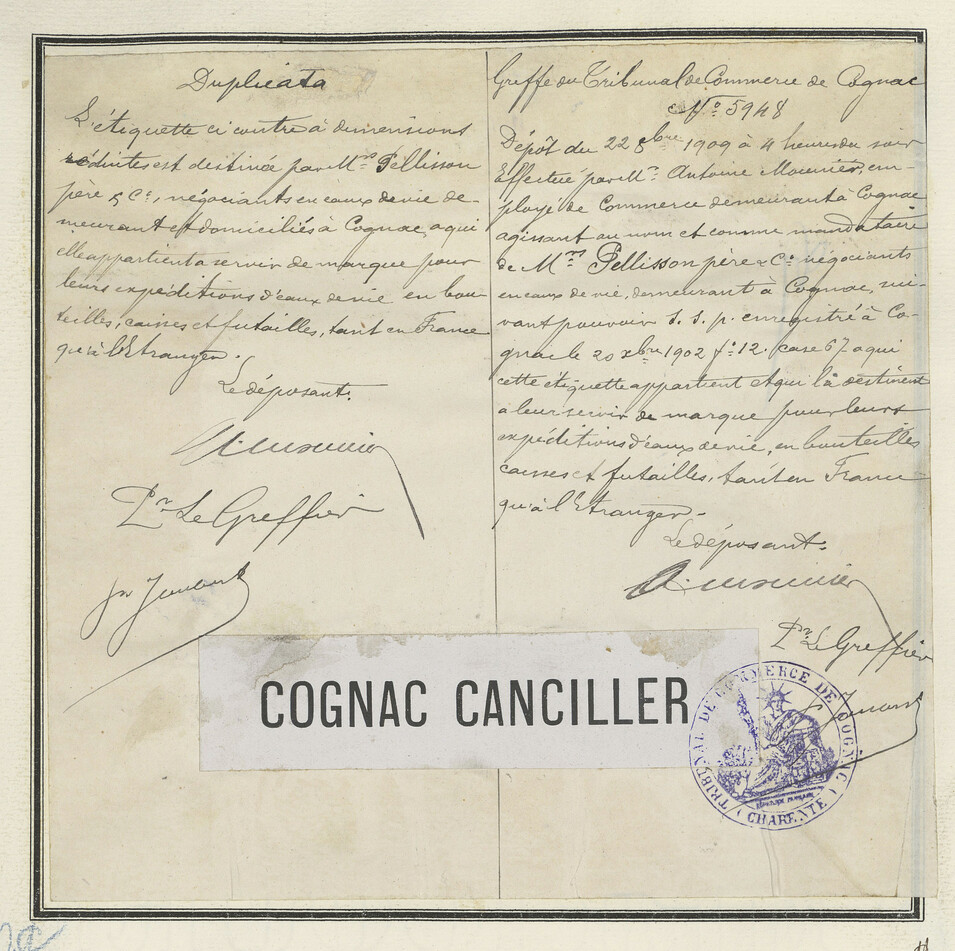 Duplicata
L'étiquette ci contre à dimensions
réduites est destinée par Mrs Pellisson
père & Cie, négociants en eaux de vie de-
meurant et domiciliés à Cognac, a qui
elle appartient a servir de marque pour
leurs expéditions d'eaux de vie en bou-
teilles, caisses et futailles, tant en France
qu'à l'Etranger.
Le déposant.
A. Mounier
Pr Le Greffier
Greffe du Tribunal de Commerce de Cognac
No 5948
Dépôt du 22 8bre 1909 à 4 heures du soir
Effectué par Mr Antoine Mounier, em-
ployé de Commerce demeurant à Cognac
agissant au nom et comme mandataire
de Mrs Pellisson père & Cie négociants
en eaux de vie, demeurant à Cognac, sui-
vant pouvoir s. s. p. enregistré à Co-
gnac le 20 xbre 1902 fo 12. case 67 a qui
cette étiquette appartient et qui la destinent
a leur servir de marque pour leurs
expéditions d'eaux de vie, en bouteilles
caisses et futailles, tant en France
qu'à l'Etranger.
Le déposant.
A. Mounier
Pr Le Greffier
COGNAC CANCILLER
TRIBUNAL DE COMMERCE DE COGNAC
(CHARENTE)